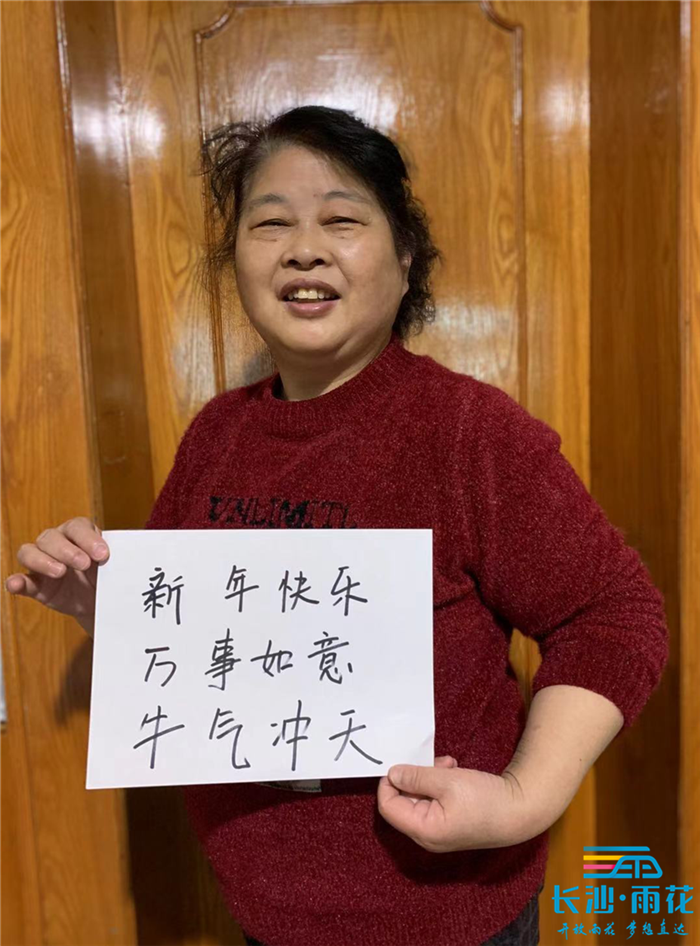 UNLIMITE
新年快乐
万事如意
牛气冲天
长沙·雨花
开放雨花 梦想直达